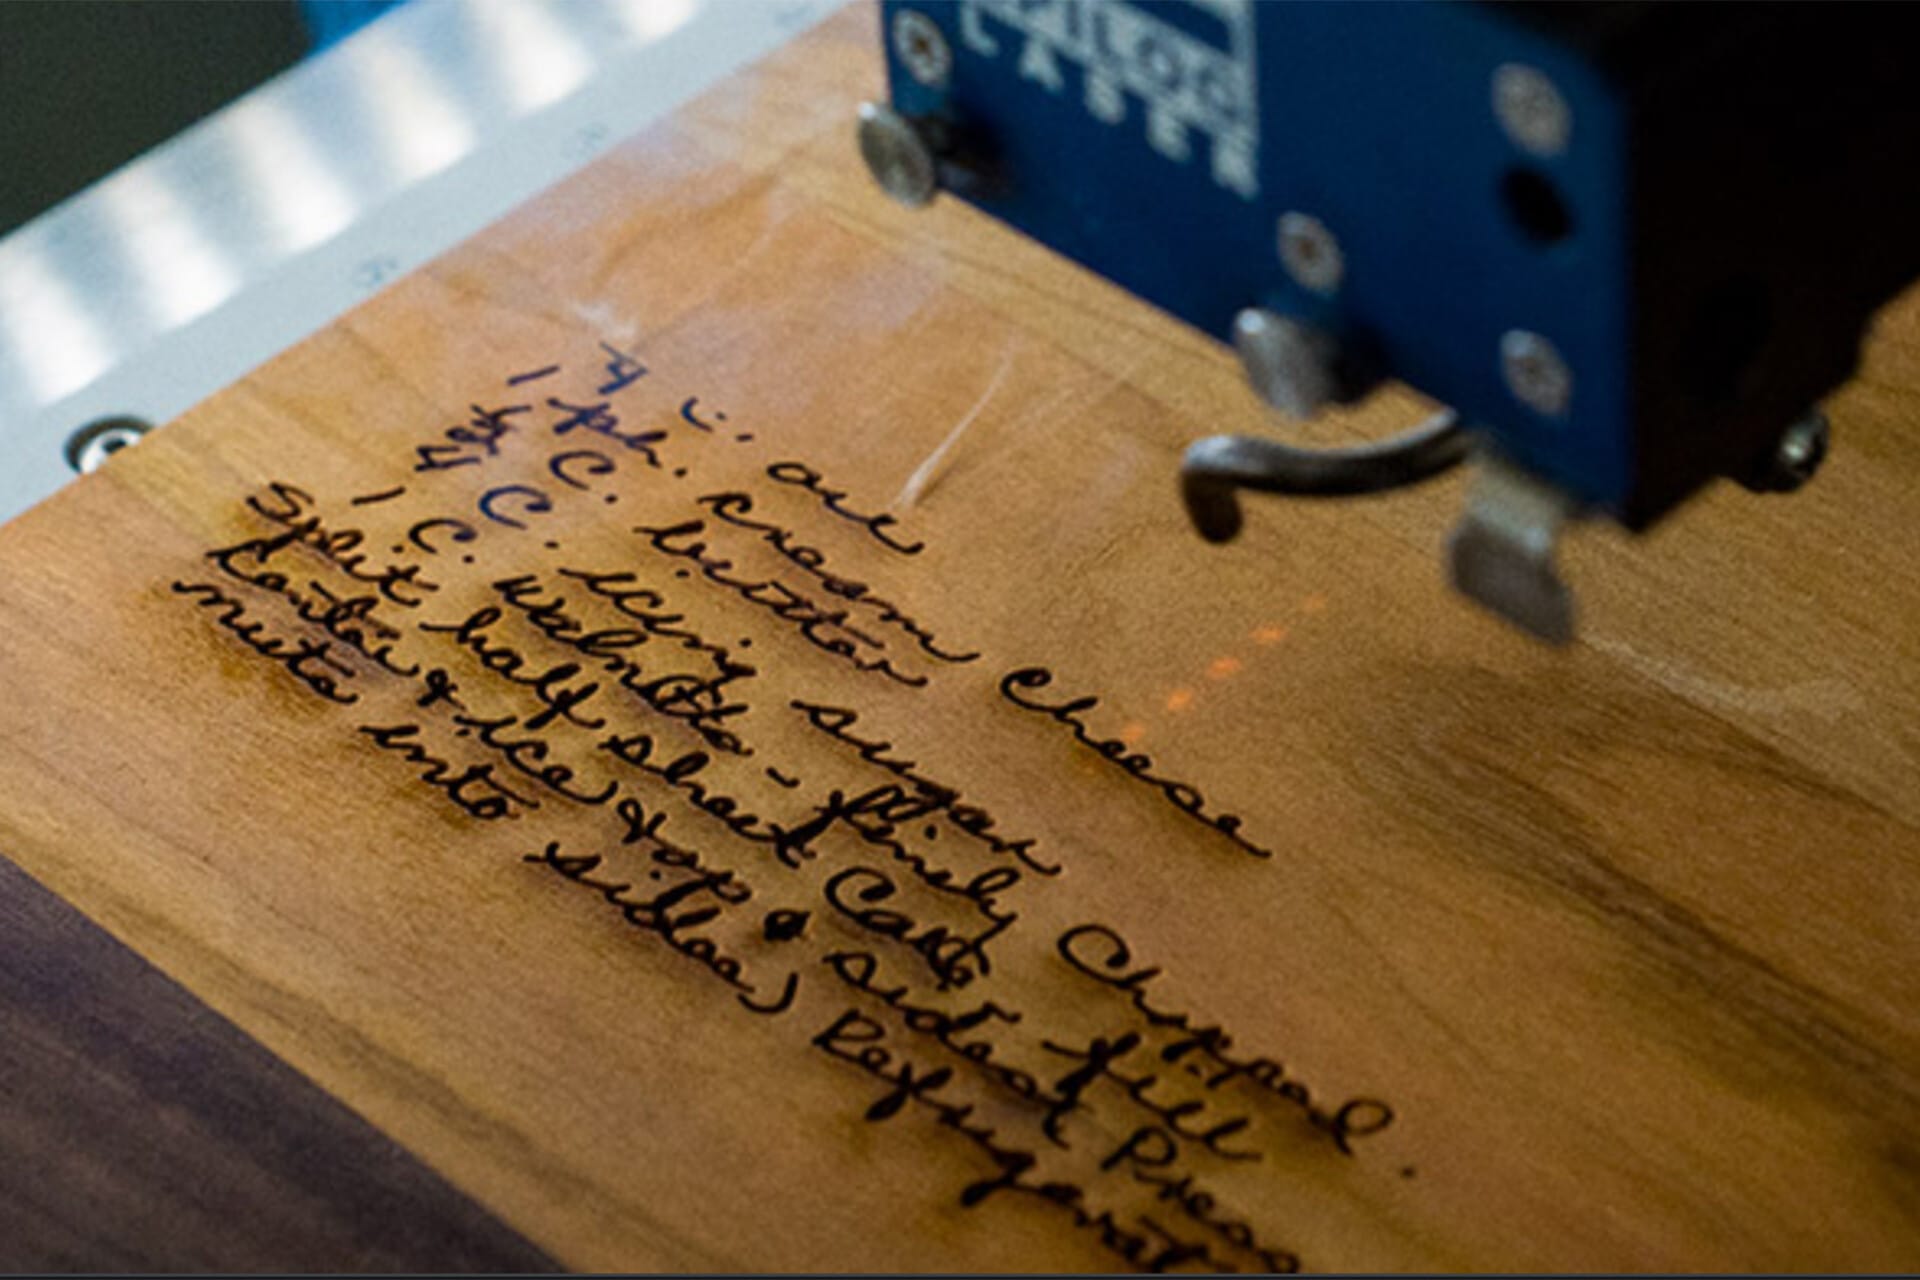 LASER
c. oil
1 pk. cream Cheese
C. butter
4 C. icing sugar
1 C. walnuts - finely Chopped.
Split half sheet Cake fill
Center & ice top & sides Press
nuts into sides) Refrigerat